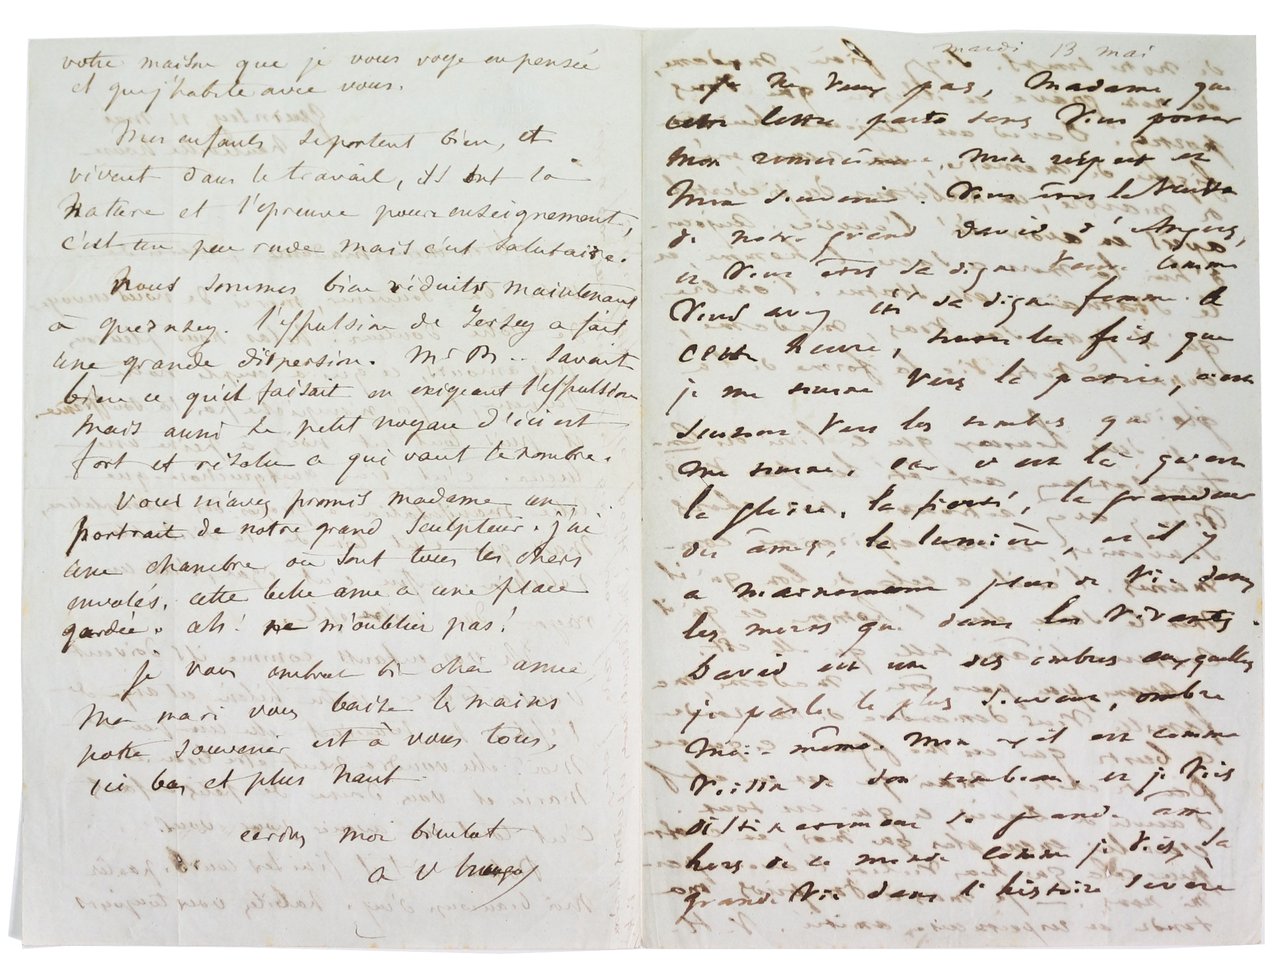 votre maison que je vous voye en pensée
et que j'habite avec vous.
Mes enfants se portent bien, et
vivent dans le travail, ils ont la
nature et l'épreuve pour enseignement,
c'est un peu rude mais c'est salutaire.
Nous sommes bien réduits maintenant
à guernesey. l'expulsion de Jersey a fait
une grande dispersion. Mr B... savait
bien ce qu'il faisait en exigeant l'expulsion
mais aussi le petit noyau d'ici est
fort et résolu ce qui vaut le nombre.
Vous m'avez promis madame un
portrait de notre grand sculpteur. j'ai
une chambre où sont tous les chers
envolés, cette belle âme a une place
gardée. ah! ne m'oubliez pas!
Je vous embrasse chère amie
Mon mari vous baise les mains
notre souvenir est à vous tous,
ici bas et plus haut
écrivez moi bientôt
a v hugo
mardi 13 mai
Je ne veux pas, Madame, que
cette lettre parte sans vous porter
mon remerciement, mon respect et
mon souvenir. Vous êtes la veuve
de notre grand David d'Angers,
et vous êtes sa digne veuve comme
vous avez été sa digne femme. A
cette heure, toutes les fois que
je me tourne vers la patrie, c'est
souvent vers les tombes que je
me tourne, car c'est là qu'est
la gloire, la fierté, la grandeur
des âmes, la lumière, et il y
a maintenant plus de vie dans
les morts que dans les vivants.
David est une des ombres auxquelles
je parle le plus souvent, ombre
moi-même. Mon exil est comme
voisin de son tombeau, et je vois
distinctement sa grande âme
hors de ce monde comme je vois sa
grande vie dans l'histoire sévère